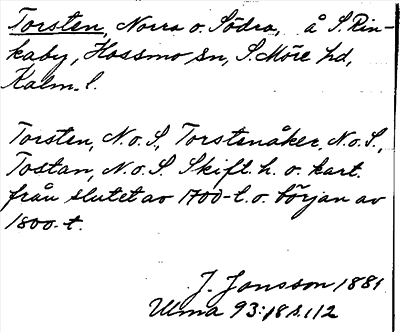 Torsten, Norra o. Södra, å S. Rin-
kaby, Hossmo sn, S. Möre hd,
Kalm. l.
Torsten, N. o. S., Torstenåker, N. o. S.,
Tostan, N. o. S. Skifl. h. o. kart.
från slutet av 1700-t. o. början av
1800-t.
J. Jonsson 1881
Ulma 93:18 s. 112